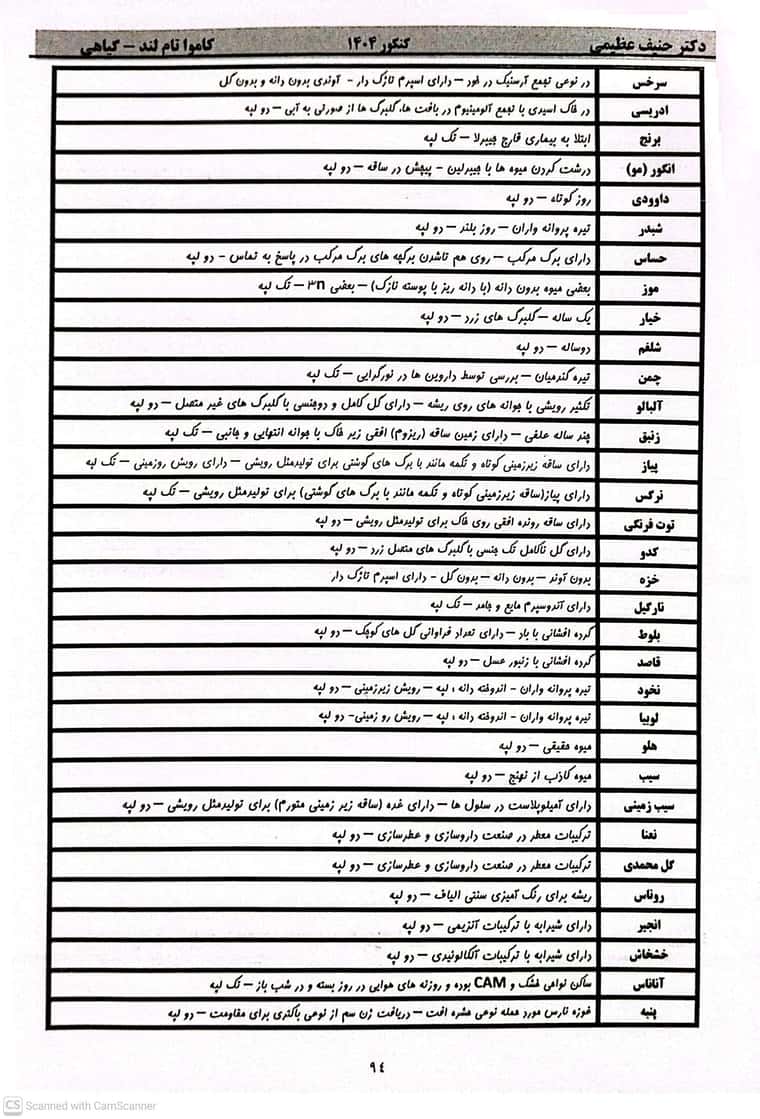 دکتر حنیف عظیمی کنکور ۱۴۰۴ کاموا تام لند – گیاهی
سرخس در نوعی تجمع آرسنیک در خود – دارای اسپرم تاژک دار – آوندی بدون دانه و بدون گل
ادریسی در خاک اسیدی با تجمع آلومینیوم در بافت ها، گلبرگ ها از صورتی به آبی – دو لپه
برنج ابتلا به بیماری قارچ جیبرلا – تک لپه
انگور (مو) درشت کردن میوه ها با جیبرلین – پیچش در ساقه – دو لپه
داوودی روز کوتاه – دو لپه
شبدر تیره پروانه واران – روز بلند – دو لپه
حساس دارای برگ مرکب – روی هم تاشدن برگچه های برگ مرکب در پاسخ به تماس – دو لپه
موز بعضی میوه بدون دانه (با دانه ریز با پوسته نازک) – بعضی ۳n – تک لپه
خیار یک ساله – گلبرگ های زرد – دو لپه
شلغم دوساله – دو لپه
چمن تیره گندمیان – بررسی توسط داروین ها در نورگرایی – تک لپه
آلبالو تکثیر رویشی با جوانه های روی ریشه – دارای گل کامل و دوجنسی با گلبرگ های غیر متصل – دو لپه
زنبق چند ساله علفی – دارای زمین ساقه (ریزوم) افقی زیر خاک با جوانه انتهایی و جانبی – تک لپه
پیاز دارای ساقه زیرزمینی کوتاه و تکمه مانند با برگ های گوشتی برای تولیدمثل رویشی – دارای رویش روزمینی – تک لپه
نرگس دارای پیاز(ساقه زیرزمینی کوتاه و تکمه مانند با برگ های گوشتی) برای تولیدمثل رویشی – تک لپه
توت فرنگی دارای ساقه رونده افقی روی خاک برای تولیدمثل رویشی – دو لپه
کدو دارای گل ناکامل تک جنسی با گلبرگ های متصل زرد – دو لپه
خزه بدون آوند – بدون دانه – بدون گل – دارای اسپرم تاژک دار
نارگیل دارای آندوسپرم مایع و جامد – تک لپه
بلوط گرده افشانی با باد – دارای تعداد فراوانی گل های کوچک – دو لپه
قاصد گرده افشانی با زنبور عسل – دو لپه
نخود تیره پروانه واران – اندوخته دانه ، لپه – رویش زیرزمینی – دو لپه
لوبیا تیره پروانه واران – اندوخته دانه ، لپه – رویش رو زمینی- دو لپه
هلو میوه حقیقی – دو لپه
سیب میوه کاذب از نهنج – دو لپه
سیب زمینی دارای آمیلوپلاست در سلول ها – دارای غده (ساقه زیر زمینی متورم) برای تولیدمثل رویشی – دو لپه
نعنا ترکیبات معطر در صنعت داروسازی و عطرسازی – دو لپه
گل محمدی ترکیبات معطر در صنعت داروسازی و عطرسازی – دو لپه
روناس ریشه برای رنگ آمیزی سنتی الیاف – دو لپه
انجیر دارای شیرابه با ترکیبات آنزیمی – دو لپه
خشخاش دارای شیرابه با ترکیبات آلکالوئیدی – دو لپه
آناناس ساکن نواحی خشک و CAM بوده و روزنه های هوایی در روز بسته و در شب باز – تک لپه
پنبه غوزه نارس مورد حمله نوعی حشره آفت – دریافت ژن سم از نوعی باکتری برای مقاومت – دو لپه
۹۴
CS Scanned with CamScanner